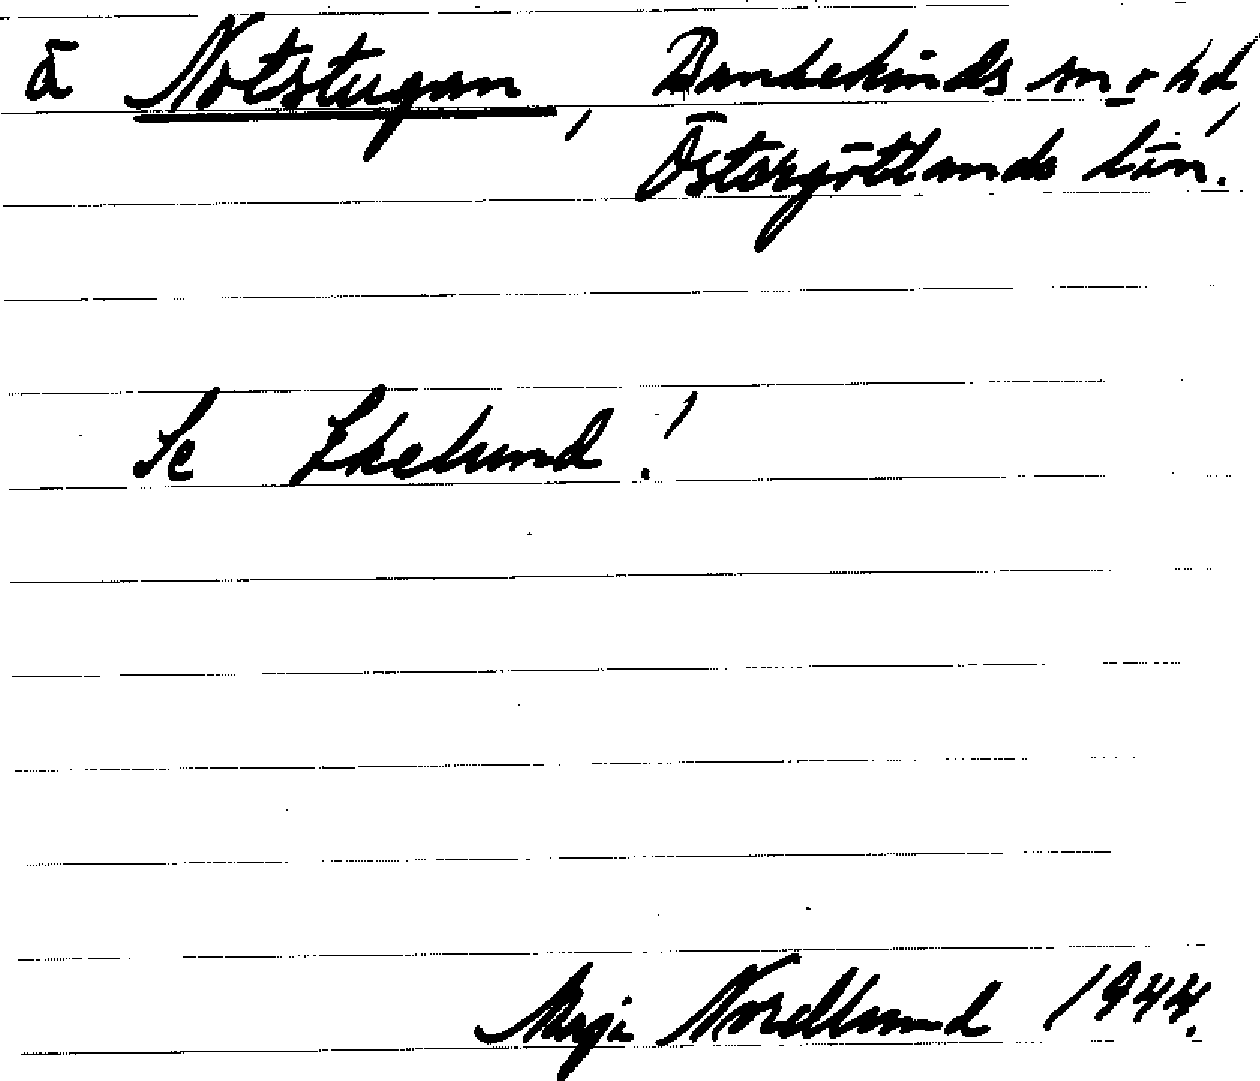 å Notstugan, Bankekinds sn o hd,
Östergötlands län.
Se Ekelund!
Margi Nordlund 1944.